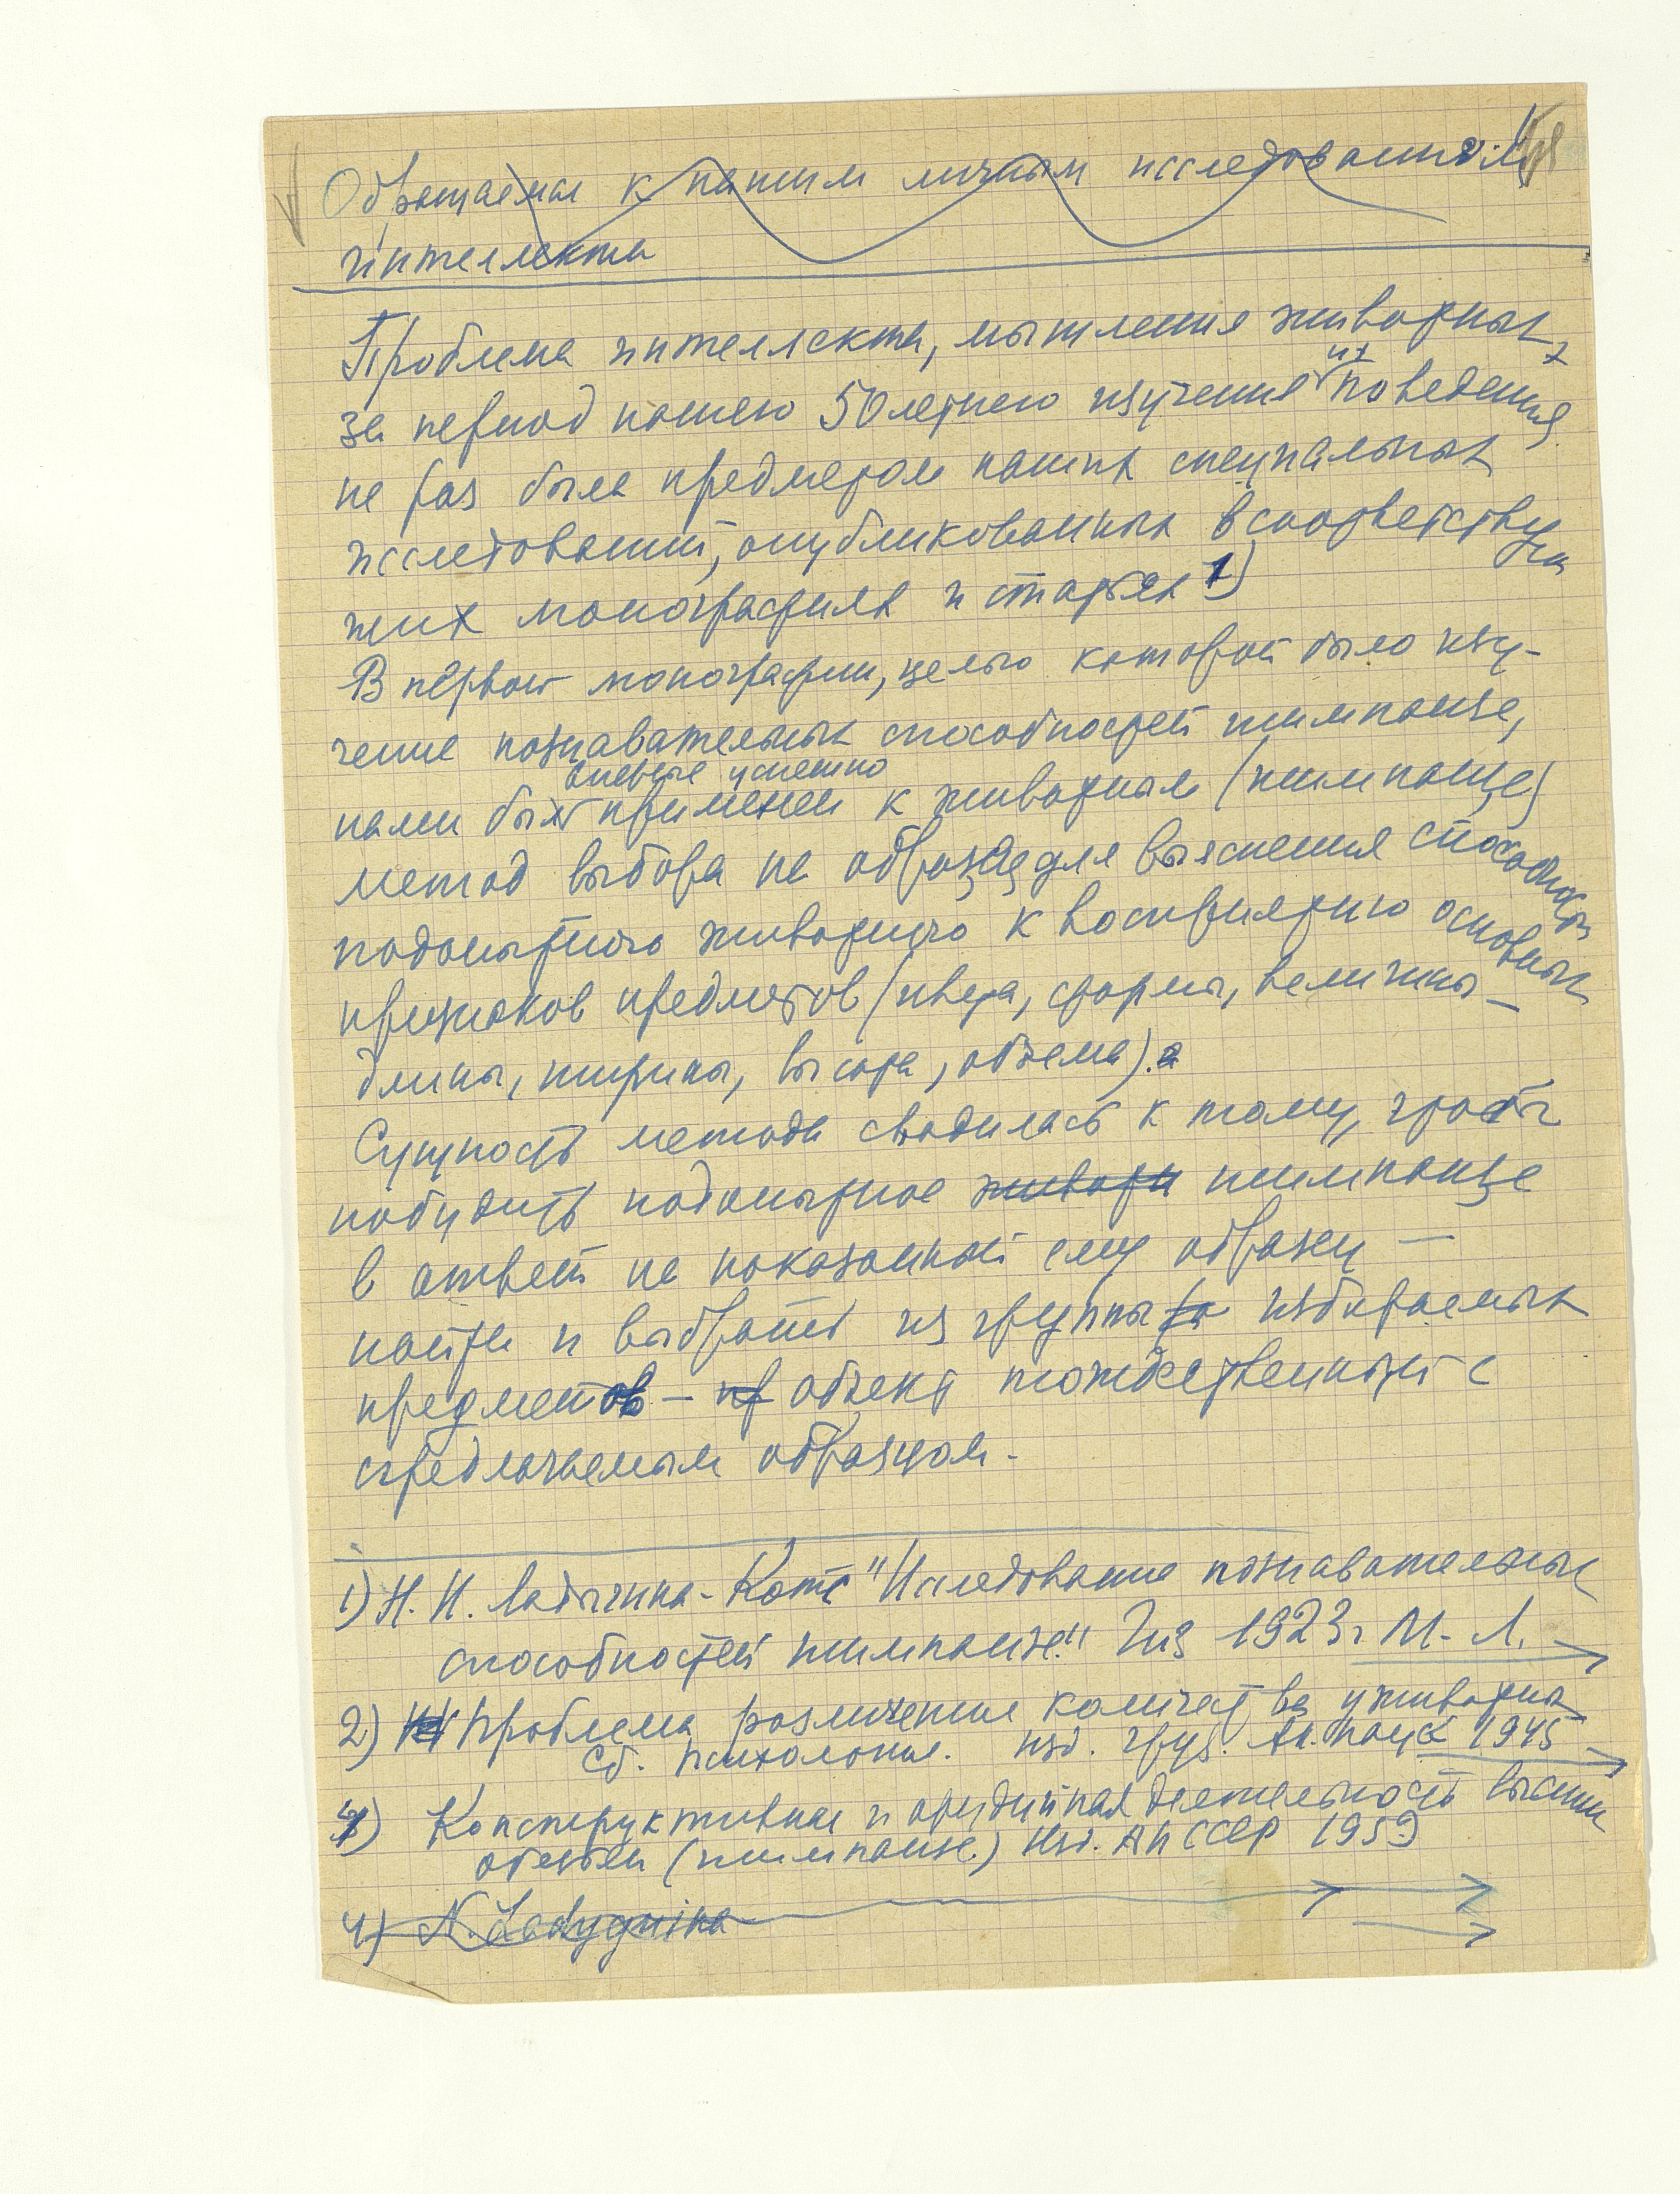 Обращаемся к нашим личным исследованиям
интеллекта
Проблема интеллекта, мышления животных,
за период нашего 50летнего изучения их поведения
не раз была предметом наших специальных
исследований, опубликованных в соответствую
щих монографиях и статьях 1)
В первой монографии, целью которой было изу-
чение познавательных способностей шимпанзе,
впервые успешно
нами был применен к животным (шимпанзе)
метод выбора на образец для выяснения способности
подопытного животного к восприятию основных
признаков предметов (цвета, формы, величины –
длины, ширины, высоты, объема).
Сущность метода сводилась к тому, чтобы
побудить подопытное животн шимпанзе
в ответ на показанный ему образец —
найти и выбрать из группы избираемых
предметов – объект тождественный с
предлагаемым образцом.
1) Н. Н. Ладыгина-Котс "Исследование познавательных
способностей шимпанзе" Гиз 1923г М.-Л.
2) Проблема различения количества у животных
Сб. Психология. изд. Груз. Ак. наук 1945
3) Конструктивная и орудийная деятельность высших
обезьян (шимпанзе) Изд. АН СССР 1959
4) N. Ladygnina